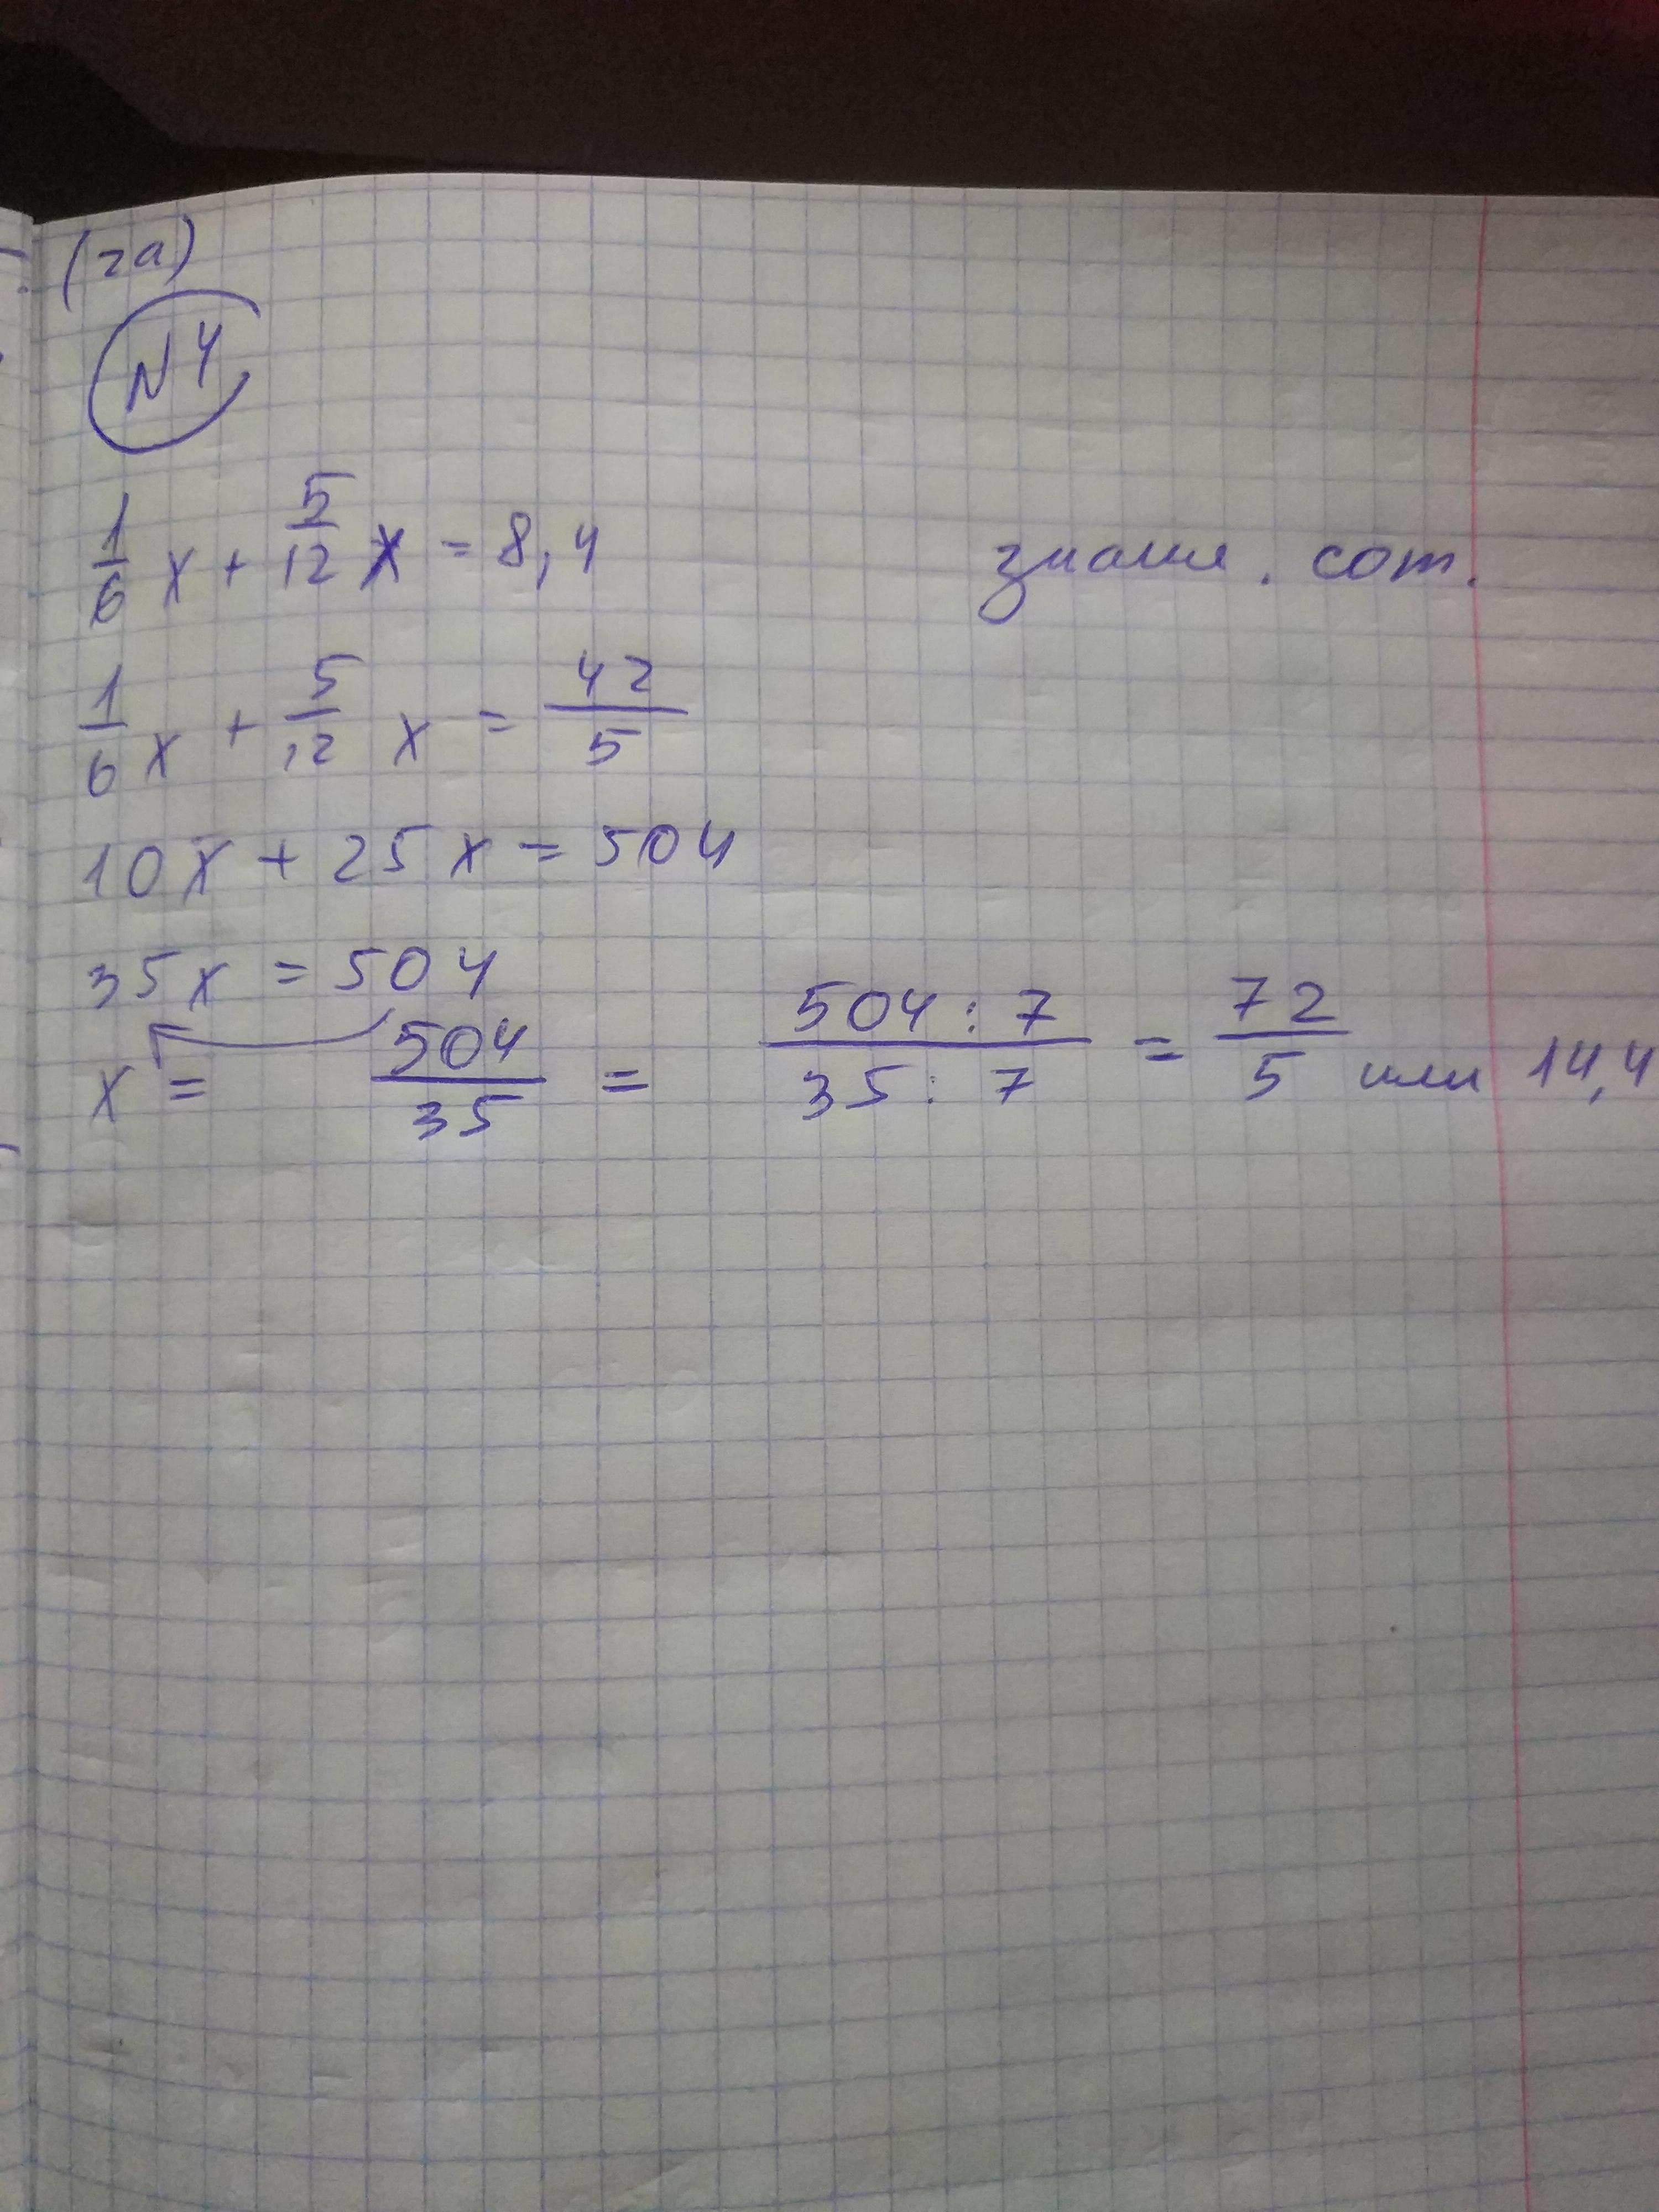 (га)
N4
1/6 x + 5/12 x = 8,4 знание.com.
1/6 x + 5/12 x = 42/5
10x + 25x = 504
35x = 504
x = 504/35 = 504:7/35:7 = 72/5 или 14,4